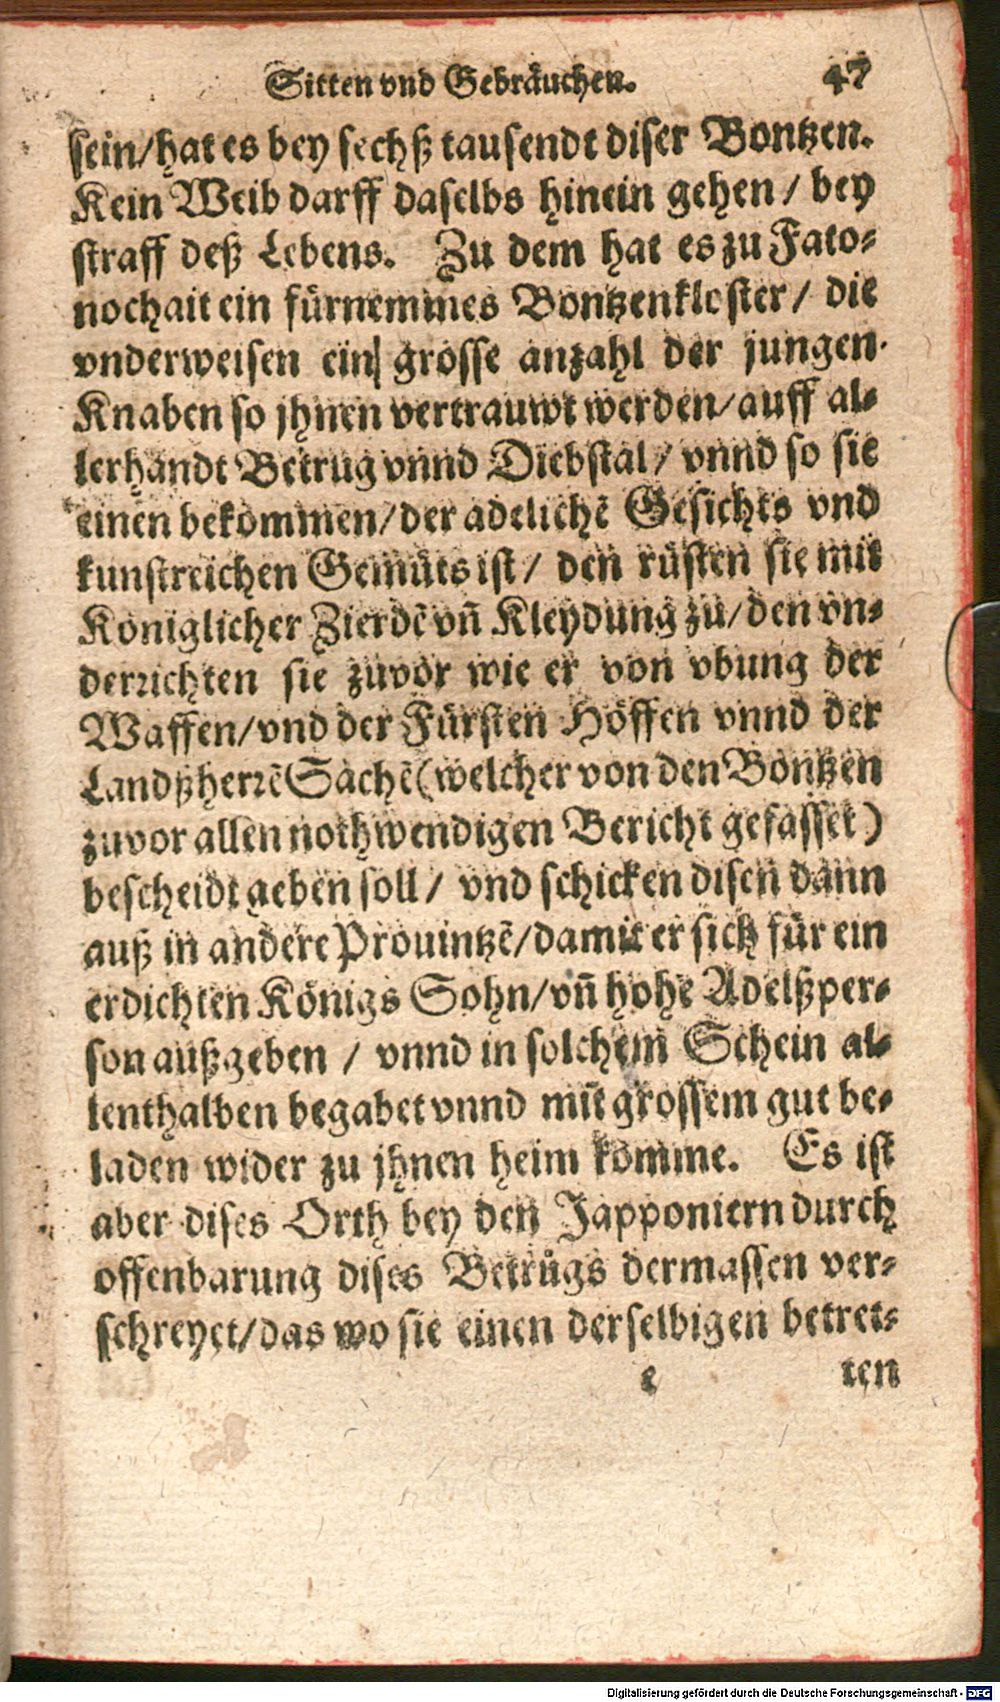 Sitten vnd Gebräuchen. 47
sein/hat es bey sechß tausendt diser Bontzen.
Kein Weib darff daselbs hinein gehen / bey
straff deß Lebens. Zu dem hat es zu Fato-
nochait ein fürnemmes Bontzenkloster / die
vnderweisen ein grosse anzahl der jungen
Knaben so jhnen vertrauwt werden/auff al-
lerhandt Betrug vnnd Diebstal / vnnd so sie
einen bekommen/der adelichẽ Gesichts vnd
kunstreichen Gemüts ist / den rüsten sie mit
Königlicher Zierdẽ vñ Kleydung zu/den vn-
derrichten sie zuvor wie er von vbung der
Waffen/vnd der Fürsten Höffen vnnd der
Landßherrẽ Sachẽ (welcher von den Bontzen
zuvor allen nothwendigen Bericht gefasset)
bescheidt geben soll / vnd schicken disen dann
auß in andere Prouintzẽ/damit er sich für ein
erdichten Königs Sohn/vñ hohe Adelßper-
son außgeben / vnnd in solchem Schein al-
lenthalben begabet vnnd mit grossem gut be-
laden wider zu jhnen heim komme. Es ist
aber dises Orth bey den Japponiern durch
offenbarung dises Betrůgs dermassen ver-
schreyet/das wo sie einen derselbigen betret-
e ten
Digitalisierung gefördert durch die Deutsche Forschungsgemeinschaft - DFG